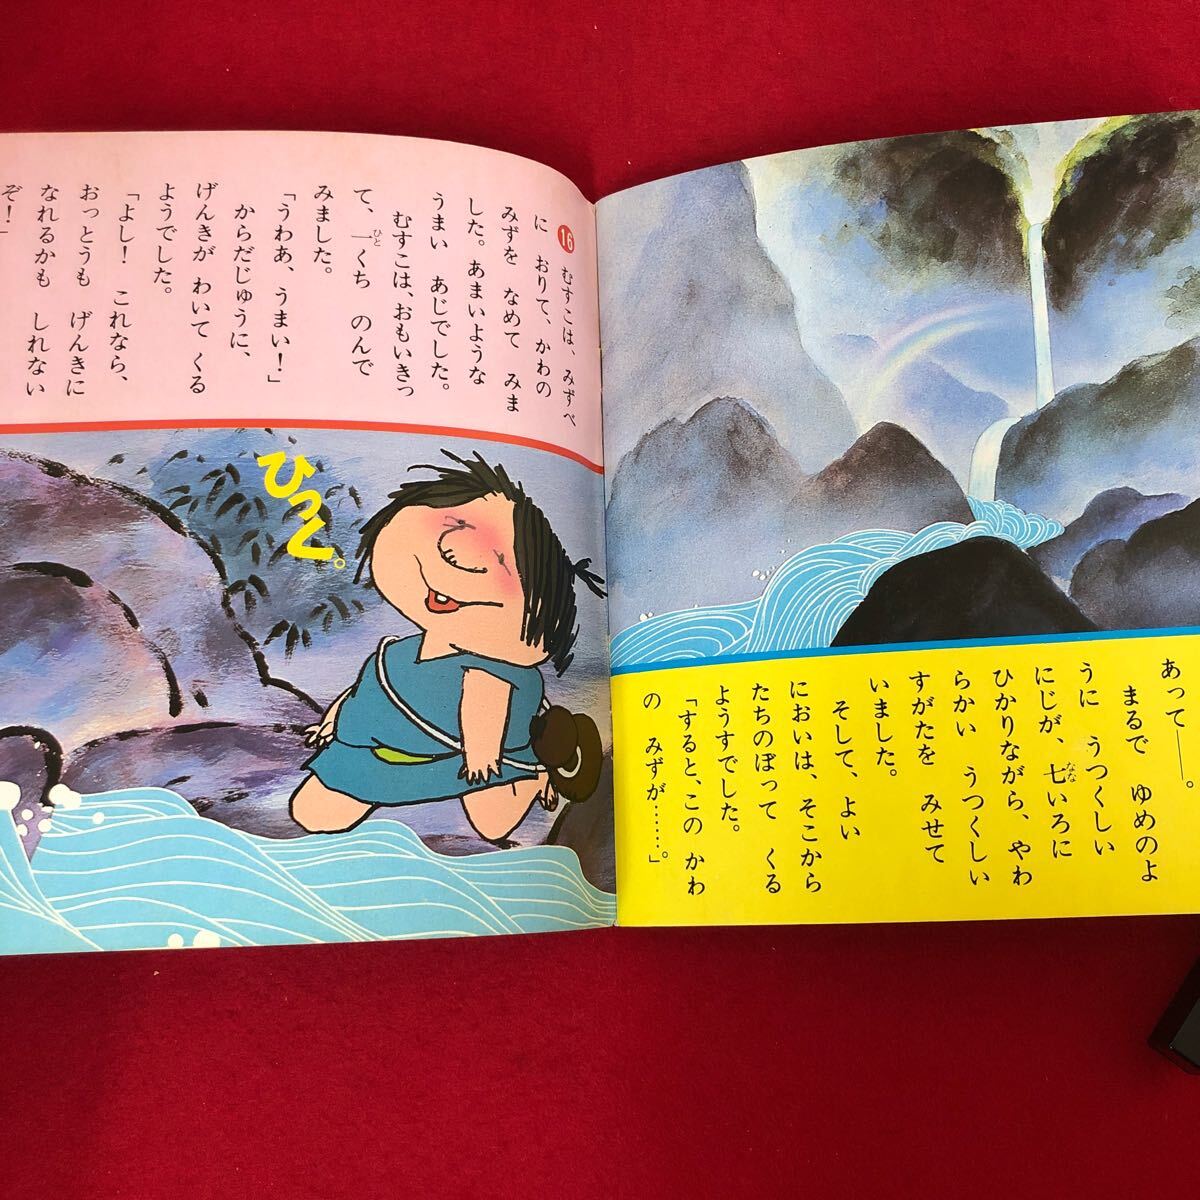 あって――。
まるで ゆめのよ
うに うつくしい
にじが、七いろに
なな
ひかりながら、やわ
らかい うつくしい
すがたを みせて
いました。
そして、よい
においは、そこから
たちのぼって くる
ようすでした。
「すると、この かわ
の みずが……」。
16 むすこは、みずべ
に おりて、かわの
みずを なめて みま
した。あまいような
うまい あじでした。
むすこは、おもいきっ
て、一くち のんで
ひと
みました。
「うわあ、うまい！」
からだじゅうに、
げんきが わいて くる
ようでした。
「よし！ これなら、
おっとうも げんきに
なれるかも しれない
ぞ！」
ひっく。